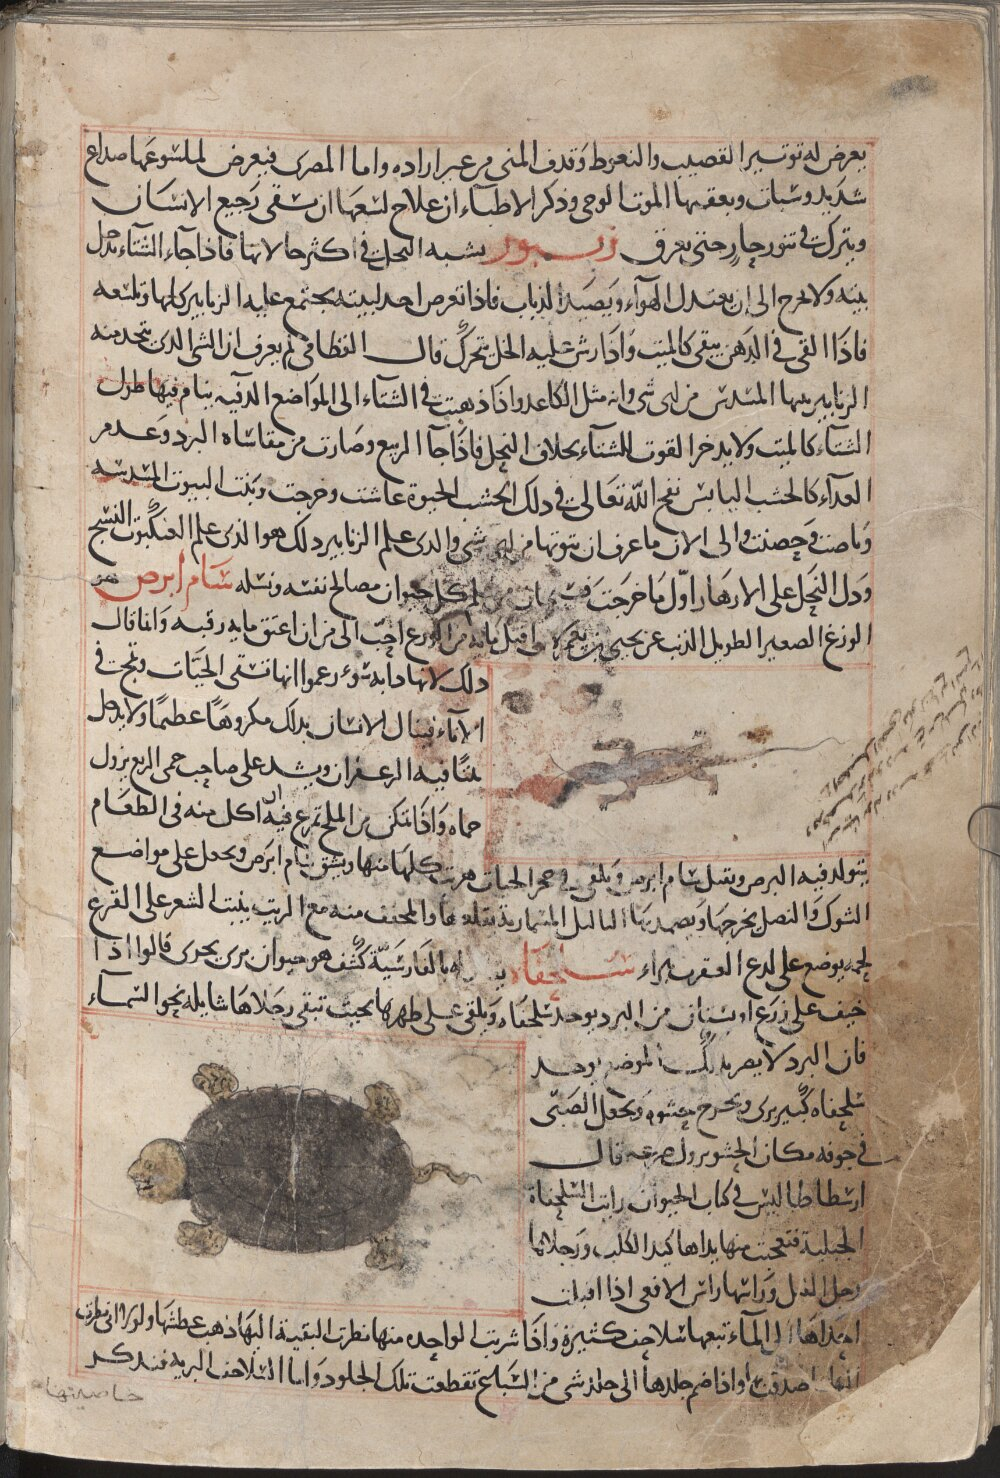 يعرض له توتير القضيب والنعوظ وقذف المنى من غير اراده واما المصرى فيعرض لملسوعها صداع
شديد وسبات ويعقبها الموت الوحى وذكر الاطباء ان علاج لسعها ان يسقى رجيع الانسان
ويترك فى تنور حار حتى يعرق زنبور يشبه النحل فى اكثر حالاتها فاذا جاء الشتاء يدخل
بيته ولا يخرج الى ان يعتدل الهواء ويصيد الذباب فاذا تعرض احد لبيته يجتمع عليه الزنابير كلها وتلسعه
فاذا القى فى الدهن يبقى كالميت واذا رش عليه الخل يتحرك قال القطامى لم يعرف ان الشى الذى يتخذ منه
الزنابير بيتها المسدس من اى شى وانه مثل الكاغد واذا ذهبت فى الشتاء الى المواضع الدفيه ينام فيها طول
الشتاء كالميت ولا يدخر القوت للشتاء بخلاف النحل فاذا جا الربيع وصارت من مقاساه البرد وعدم
الغداء كالخشب اليابس نفخ الله تعالى فى ذلك الخشب الحيوة عاشت وخرجت وبنت البيوت المسدسه
وباضت وحضنت والى الان ما عرف ان بيوتها من اى شى والذى علم الزنابير ذلك هو الذى علم العنكبوت النسج
ودل النحل على الازهار اول ما خرجت كل حيوان مصالح نفسه ونسله سام ابرص
الوزغ الصغير الطويل الذنب عن يحيى بن يعمر لان اقتل مايه من الوزغ احب الى من ان اعتق مايه رقبه وانما قال
ذلك لانها دابه سوء زعموا انها تسقى الحيات وتمج فى
الاناء فينال الانسان بذلك مكروها عظيما ولا يدخل
بيتا فيه الزعفران ويشد على صاحب حمى الربع يزول
حماه واذا تمكن من الملح تمرغ فيه ان اكل منه فى الطعام
يتولد فيه البرص وتقتل سام ابرص وتلقى فى جحر الحيات هربت كلها منها ويشق سام ابرص ويجعل على مواضع
الشوك والنصل يخرجها ويضمد بها الثاليل المسمارية تقلعها والمجفف منه مع الزيت ينبت الشعر على القرع
لحمه يوضع على لدغ العقرب يبراء سلحفاه بالفارسية كشف هو حيوان برى بحرى قالوا اذا
خيف على زرع او بستان من البرد يوخذ سلحفاه ويلقى على ظهرها بحيث تبقى رجلاها شايله نحو السماء
فان البرد لا يضر بذلك الموضع يوخذ
سلحفاه كبير برى ويخرج حشوه ويجعل الصبى
فى جوفه مكان الحشو يزول صرعه قال
ارسطاطاليس فى كتاب الحيوان رايت السلحفاة
الجبلية فتعجبت منها يداها كيدا الكلب ورجلاها
رجل الفيل وراسها راس الافعى اذا اقبلت
احداها الى الماء تبعها سلاحف كثيرة واذا شربت الواحده منها نظرت البقية اليها ذهب عطشها ولولا انى نظرت
اليها ما صدقت واذا ضم جلدها الى جلد شى من السباع تقطعت تلك الجلود واما السلاحف البريه فتذكر
خاصيتها